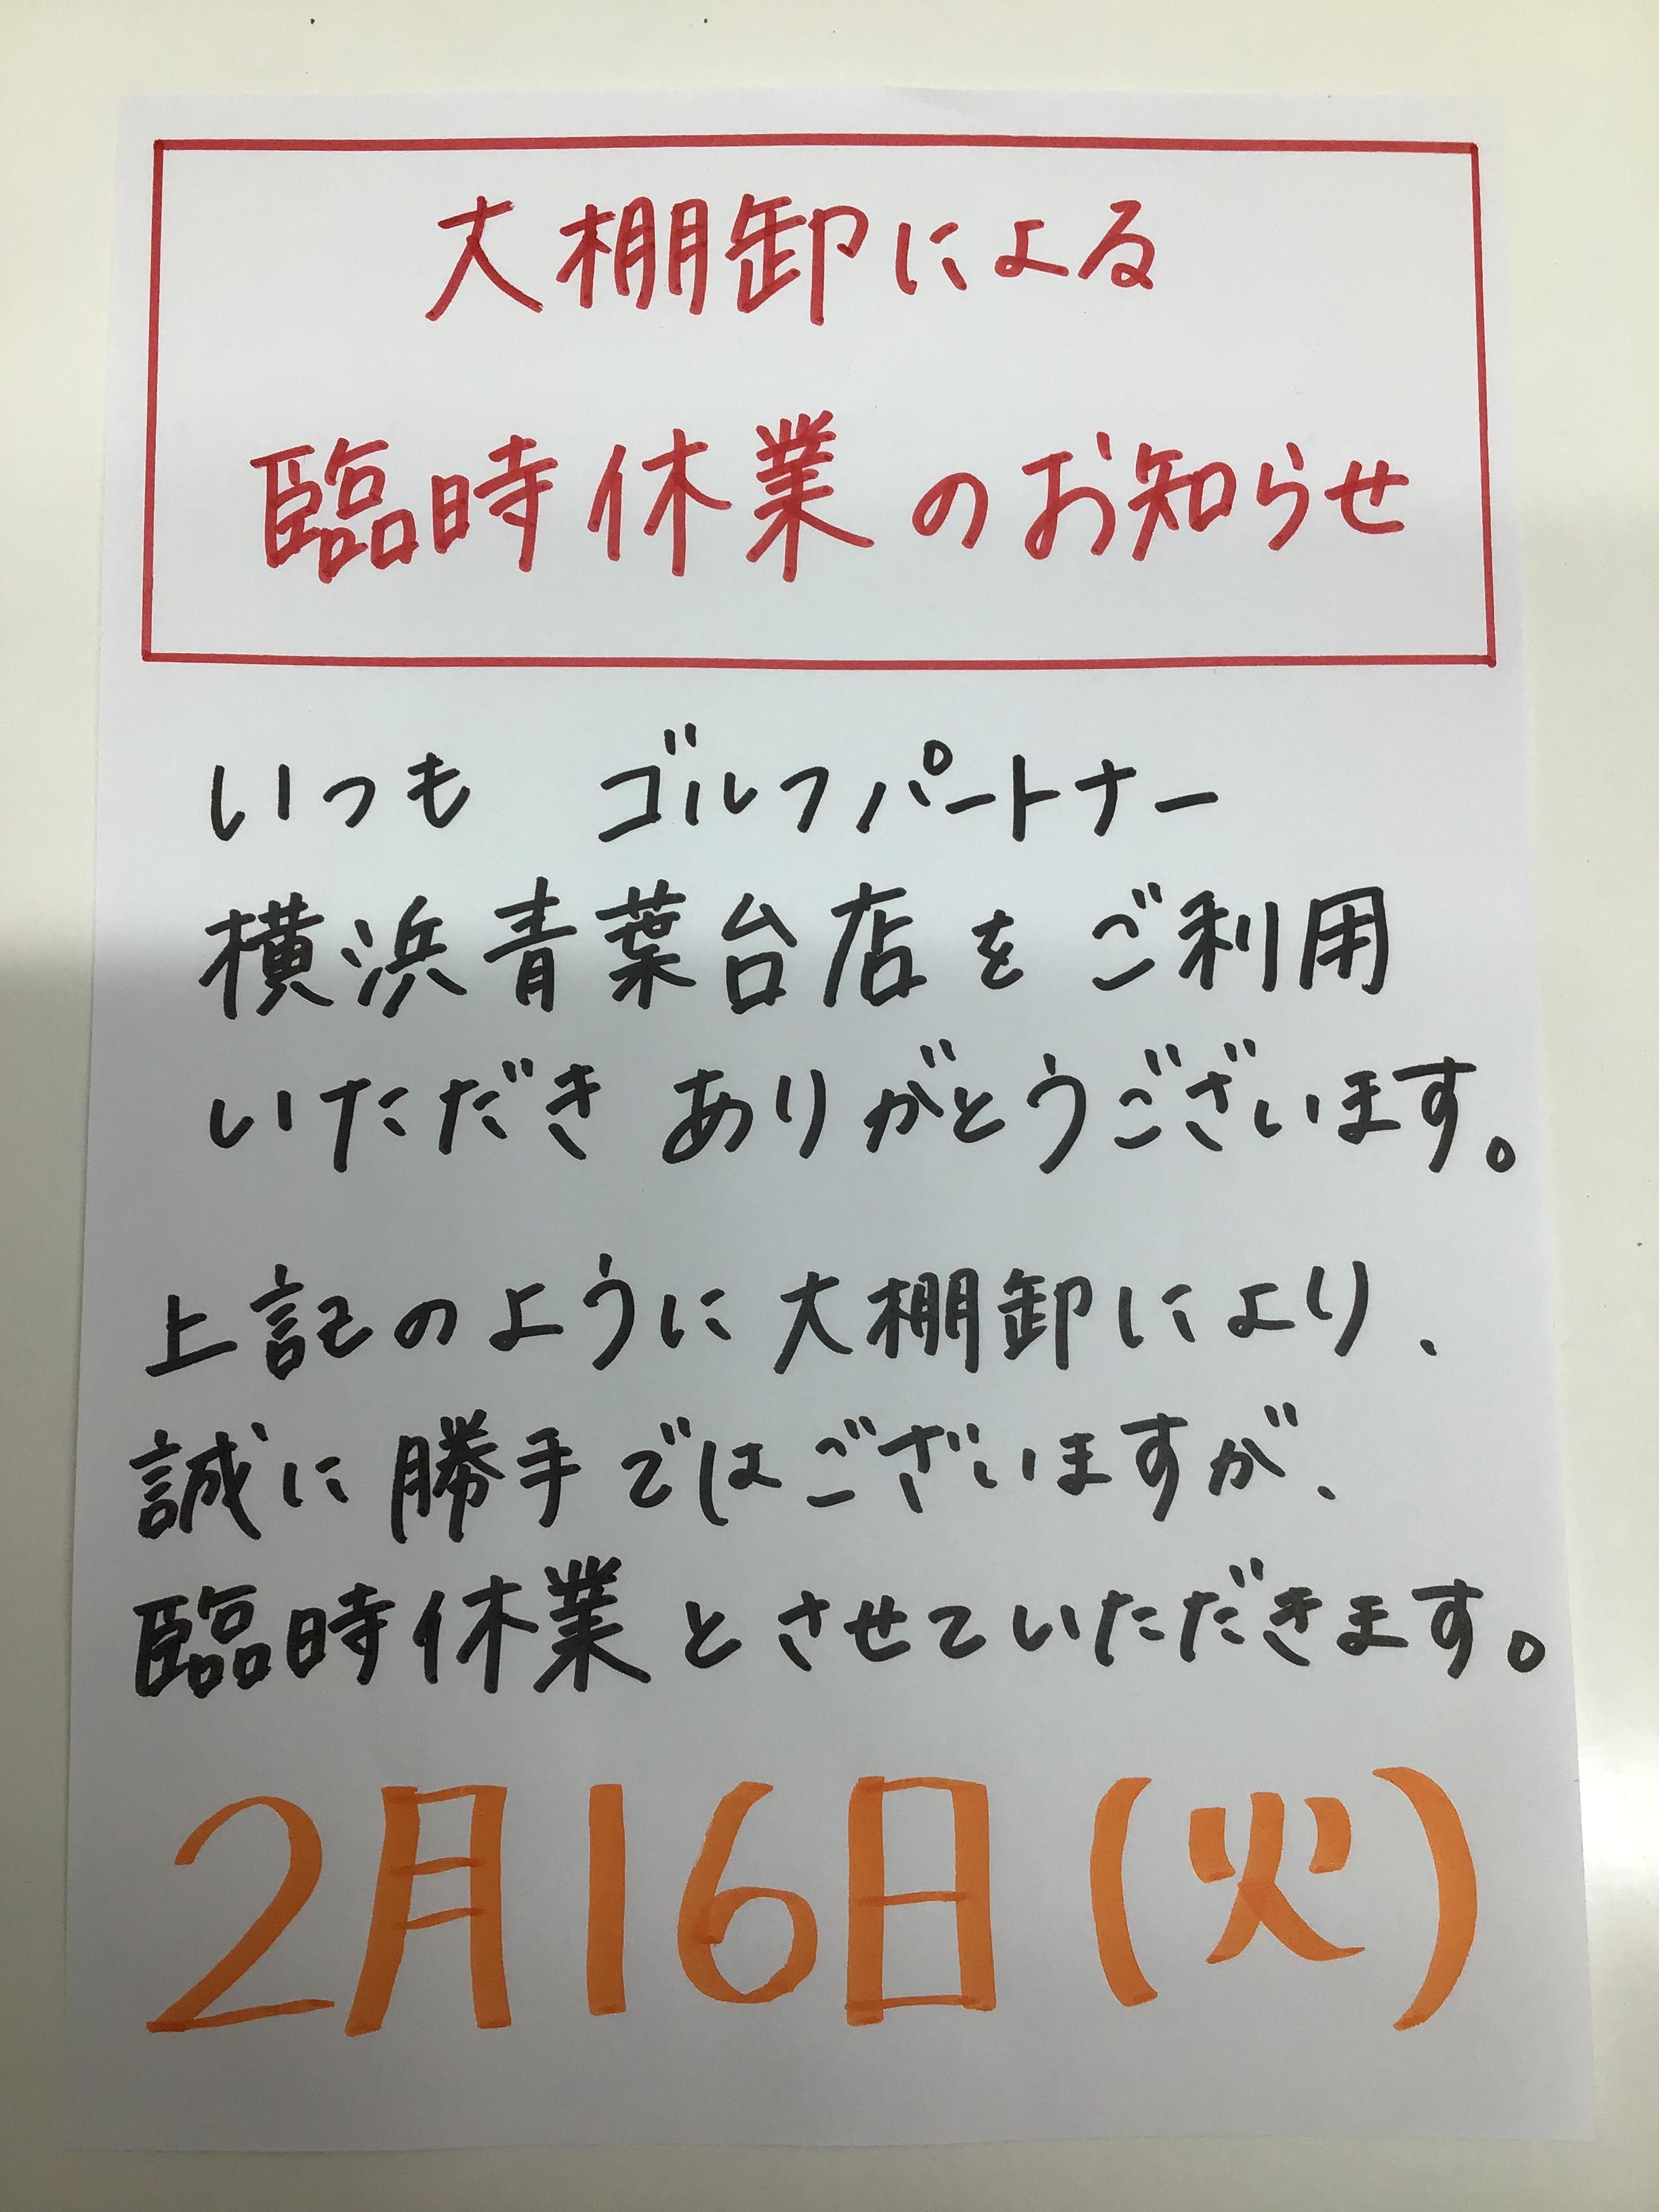 大棚卸による
臨時休業のお知らせ
いつも ゴルフパートナー
横浜青葉台店をご利用
いただき ありがとうございます。
上記のように大棚卸により、
誠に勝手ではございますが、
臨時休業とさせていただきます。
2月16日(火)